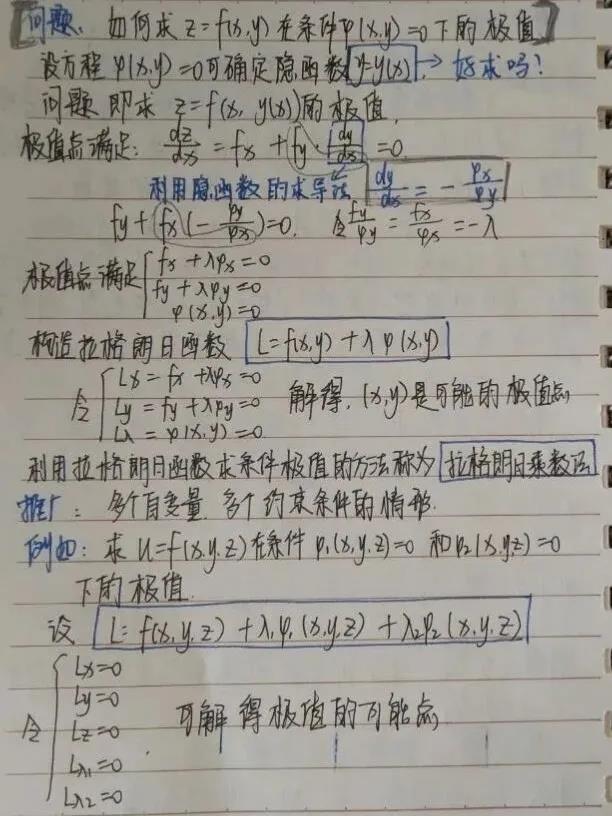 【问题. 如何求 z=f(x,y) 在条件φ(x,y)=0下的极值】
设方程 φ(x,y)=0可确定隐函数 y=y(x). → 好求吗?
问题即求 z=f(x, y(x))的极值.
极值点满足: dz/dx = fx + fy · dy/dx = 0
利用隐函数的求导法 dy/dx = - φx/φy
fy+fx(-φy/φx)=0. 令 fy/φy = fx/φx = -λ
极值点满足 { fx+λφx=0
fy+λφy=0
φ(x,y)=0
构造拉格朗日函数 L=f(x,y)+λφ(x,y)
令 { Lx = fx+λφx=0
Ly = fy+λφy=0 解得, (x,y)是可能的极值点
Lλ = φ(x,y)=0
利用拉格朗日函数求条件极值的方法称为 拉格朗日乘数法
推广: 多个自变量. 多个约束条件的情形.
例如: 求 u=f(x,y,z)在条件 φ1(x,y,z)=0 和φ2(x,y,z)=0
下的极值.
设 L= f(x,y,z)+λ1φ1(x,y,z)+λ2φ2(x,y,z)
令 { Lx=0
Ly=0
Lz=0 可解得极值的可能点
Lλ1=0
Lλ2=0